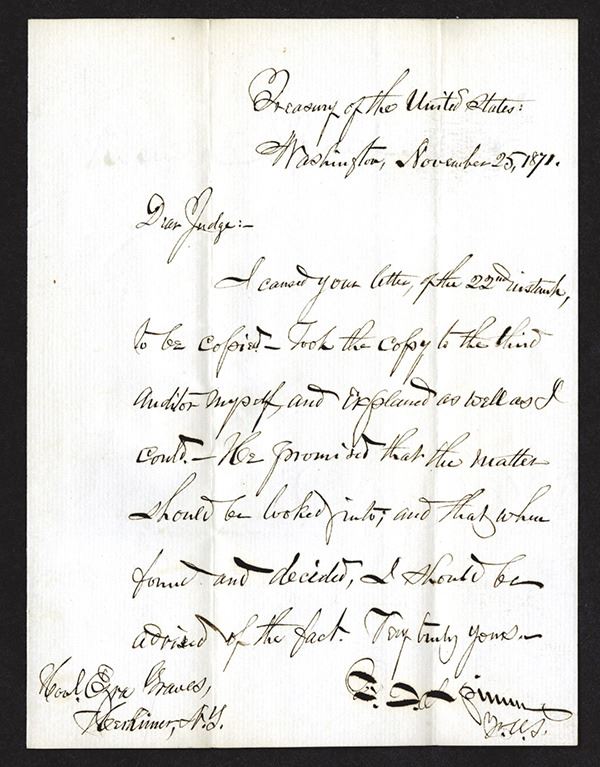 Treasury of the United States:
Washington, November 25, 1871.
Dear Judge:-
I caused your letter, of the 22nd instant,
to be copied – Took the copy to the third
Auditor myself, and Explained as well as I
could. – He promised that the matter
should be looked into; and that when
found and decided, I should be
advised of the fact. Very truly yours. –
Honl. Ezra Graves,
Herkimer, N.Y.
F. E. Spinner
Tr. U.S.